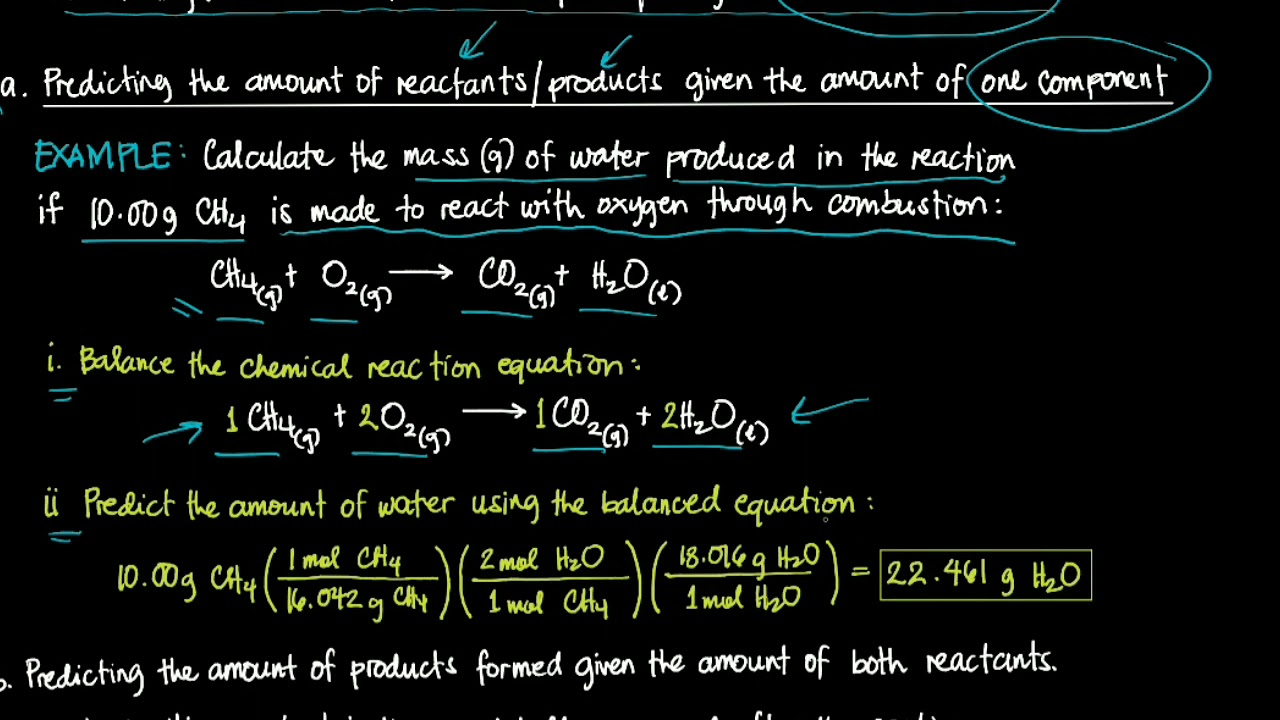 a. Predicting the amount of reactants/products given the amount of one component
EXAMPLE: Calculate the mass (g) of water produced in the reaction
if 10.00g CH4 is made to react with oxygen through combustion:
CH4(g) + O2(g) → CO2(g) + H2O(l)
i. Balance the chemical reaction equation:
1 CH4(g) + 2O2(g) → 1CO2(g) + 2H2O(l)
ii Predict the amount of water using the balanced equation:
10.00g CH4 (1 mol CH4 / 16.042 g CH4) (2 mol H2O / 1 mol CH4) (18.016 g H2O / 1 mol H2O) = 22.461 g H2O
. Predicting the amount of products formed given the amount of both reactants.